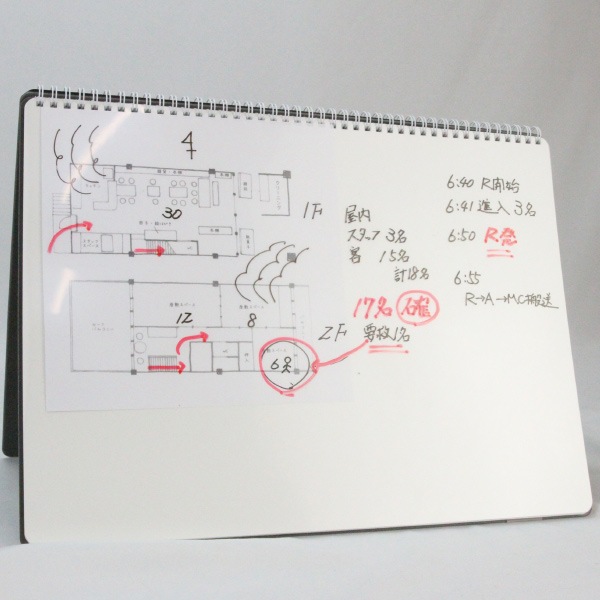 4
30
1F
12
8
6
2F
屋内
スタッフ 3名
客 15名
計18名
17名 確
要救1名
6:40 R開始
6:41 進入 3名
6:50 R急
6:55
R→A→MC搬送